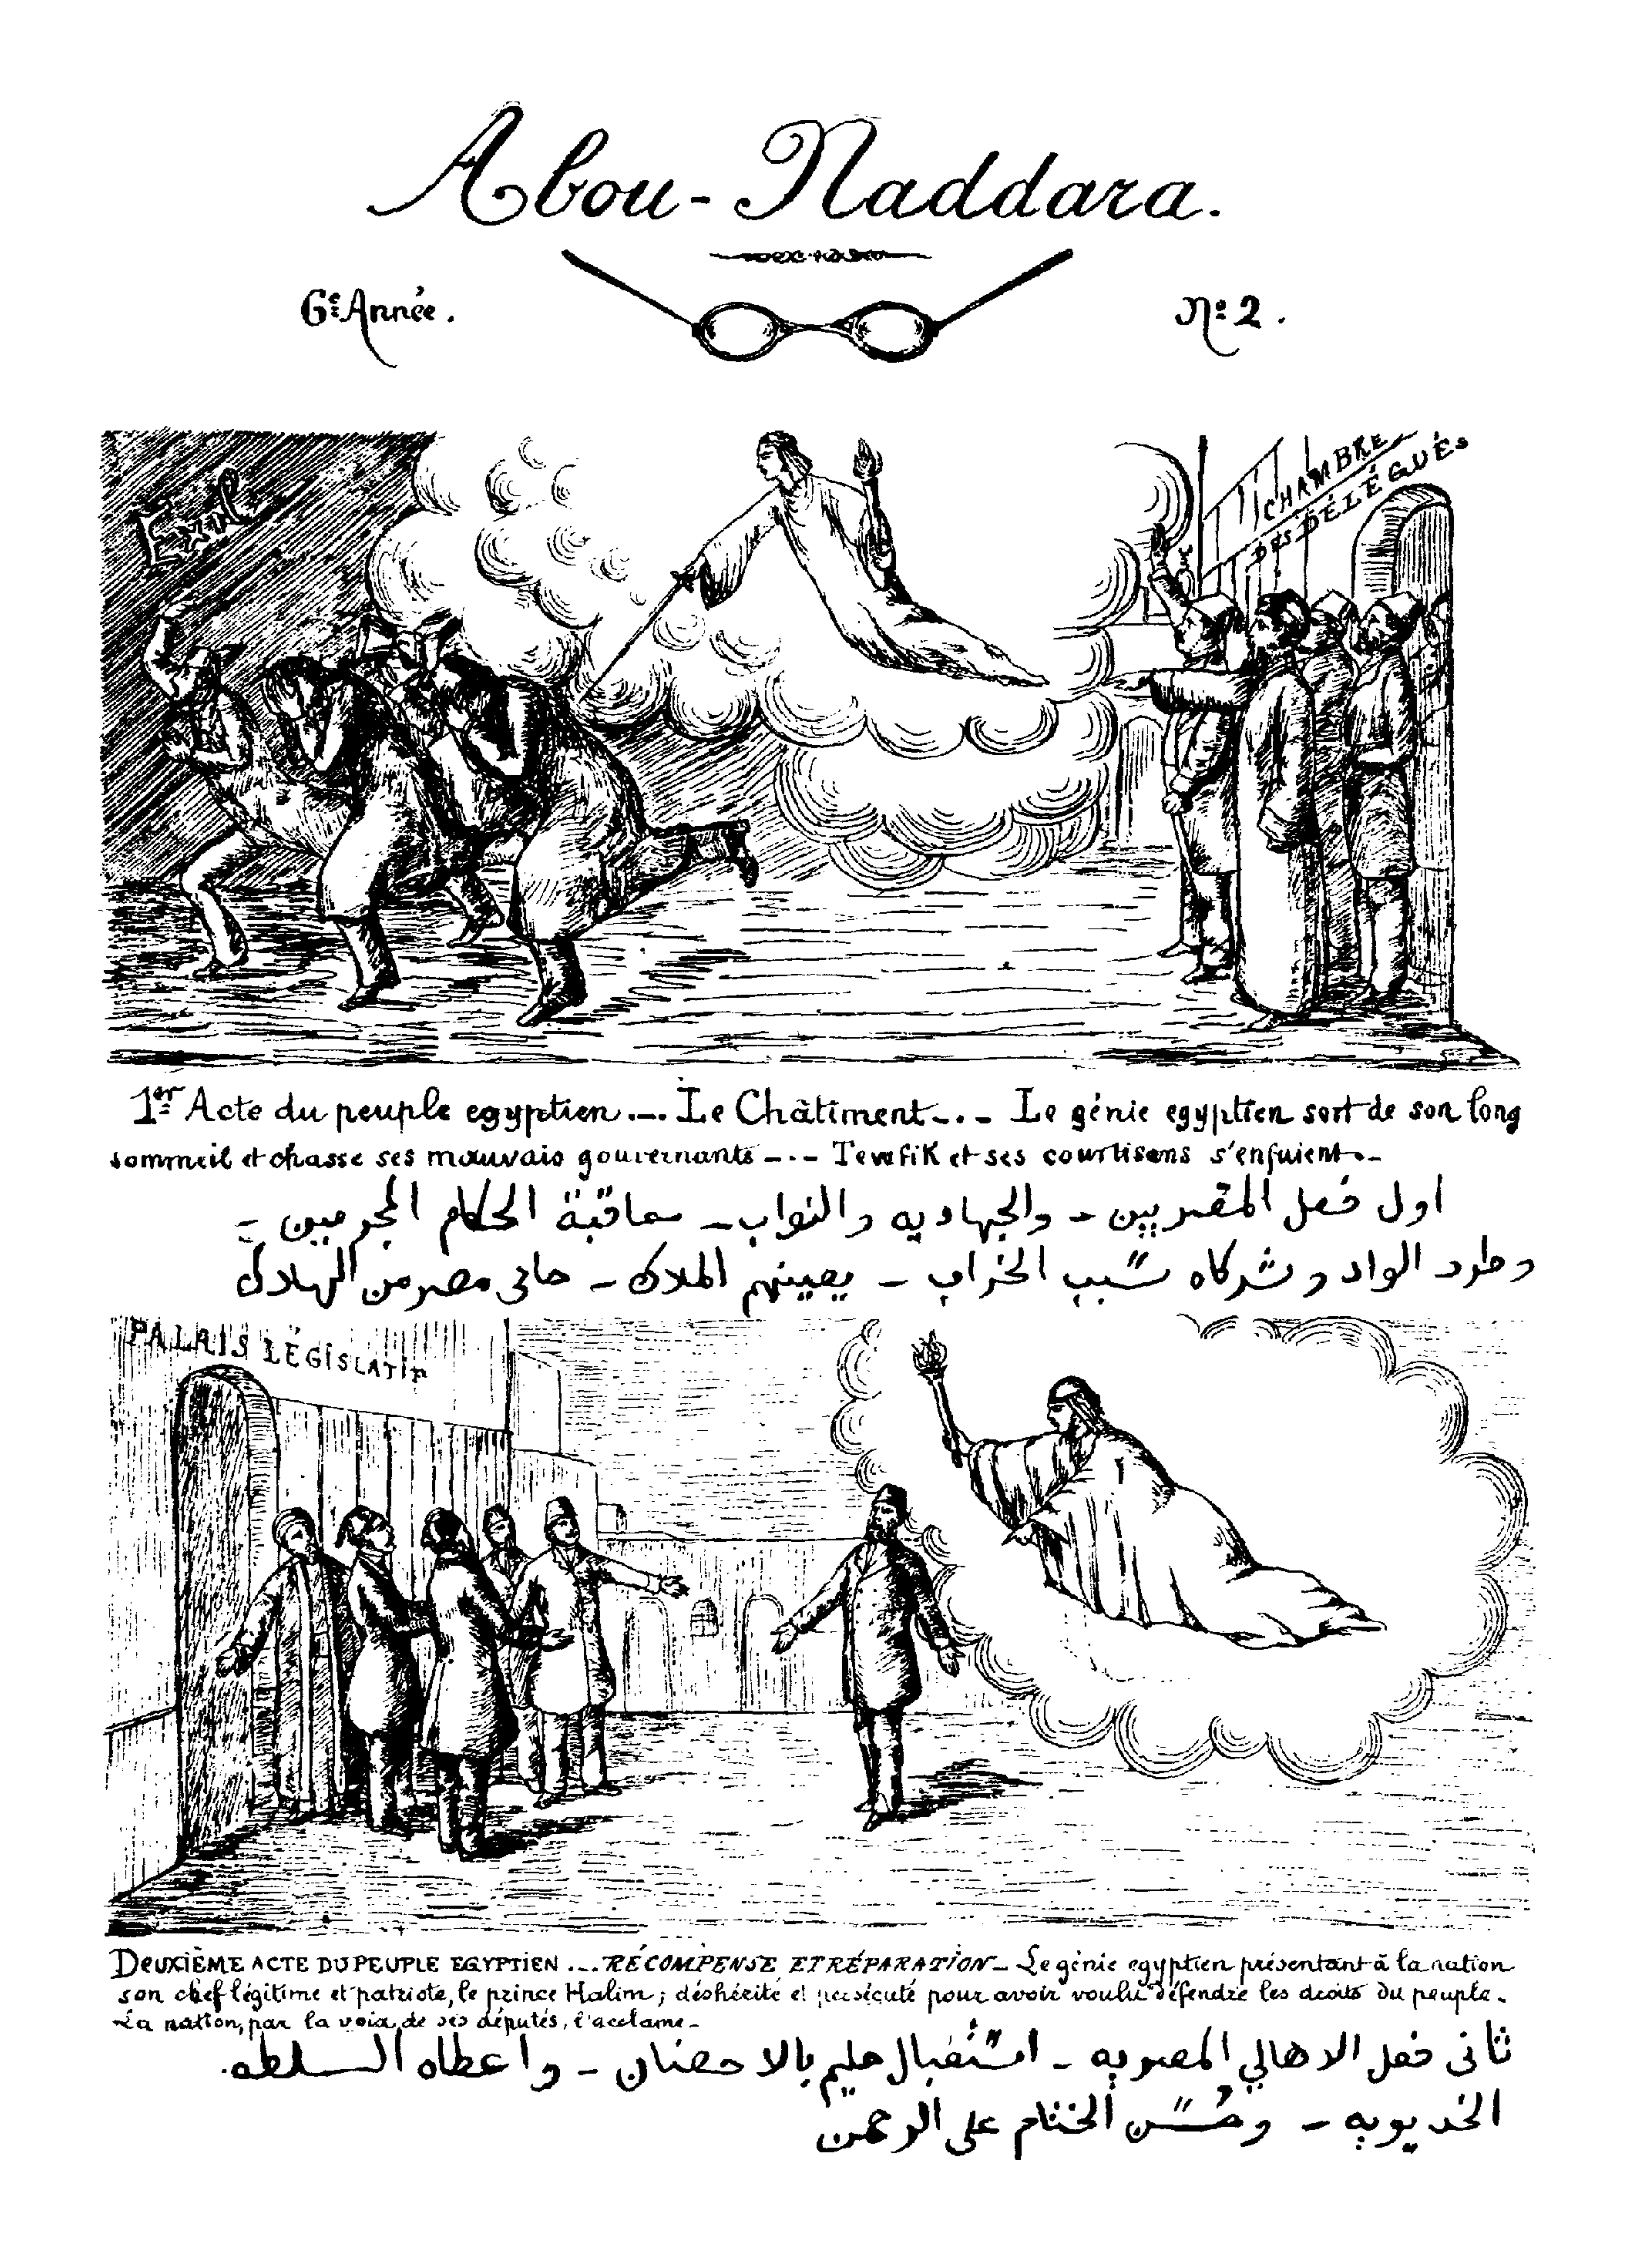 Abou-Naddara.
6e Année.
No 2.
Exil
CHAMBRE
DES DÉLÉGUÉS
1er Acte du peuple egyptien.-. Le Châtiment-.- Le génie egyptien sort de son long
sommeil et chasse ses mauvais gouvernants -.- Tewfik et ses courtisans s'enfuient.-
اول فصل المصريين - والجهاديه والنواب - معاقبة الحكام المجرمين -
وطرد الواد وشركاه سبب الخراب - يعينهم الملاك - حامى مصر من الهلاك
PALAIS LÉGISLATIF
DEUXIÈME ACTE DU PEUPLE EGYPTIEN ... RÉCOMPENSE ET RÉPARATION - Le génie egyptien présentant à la nation
son chef légitime et patriote, le prince Halim; déshérité et persécuté pour avoir voulu défendre les droits du peuple.
La nation, par la voix de ses députés, l'acclame -
ثانى فصل الاهالي المصريه - استقبال حليم بالاحضان - واعطاه السلطه
الخديويه - وحسن الختام على الرحمن